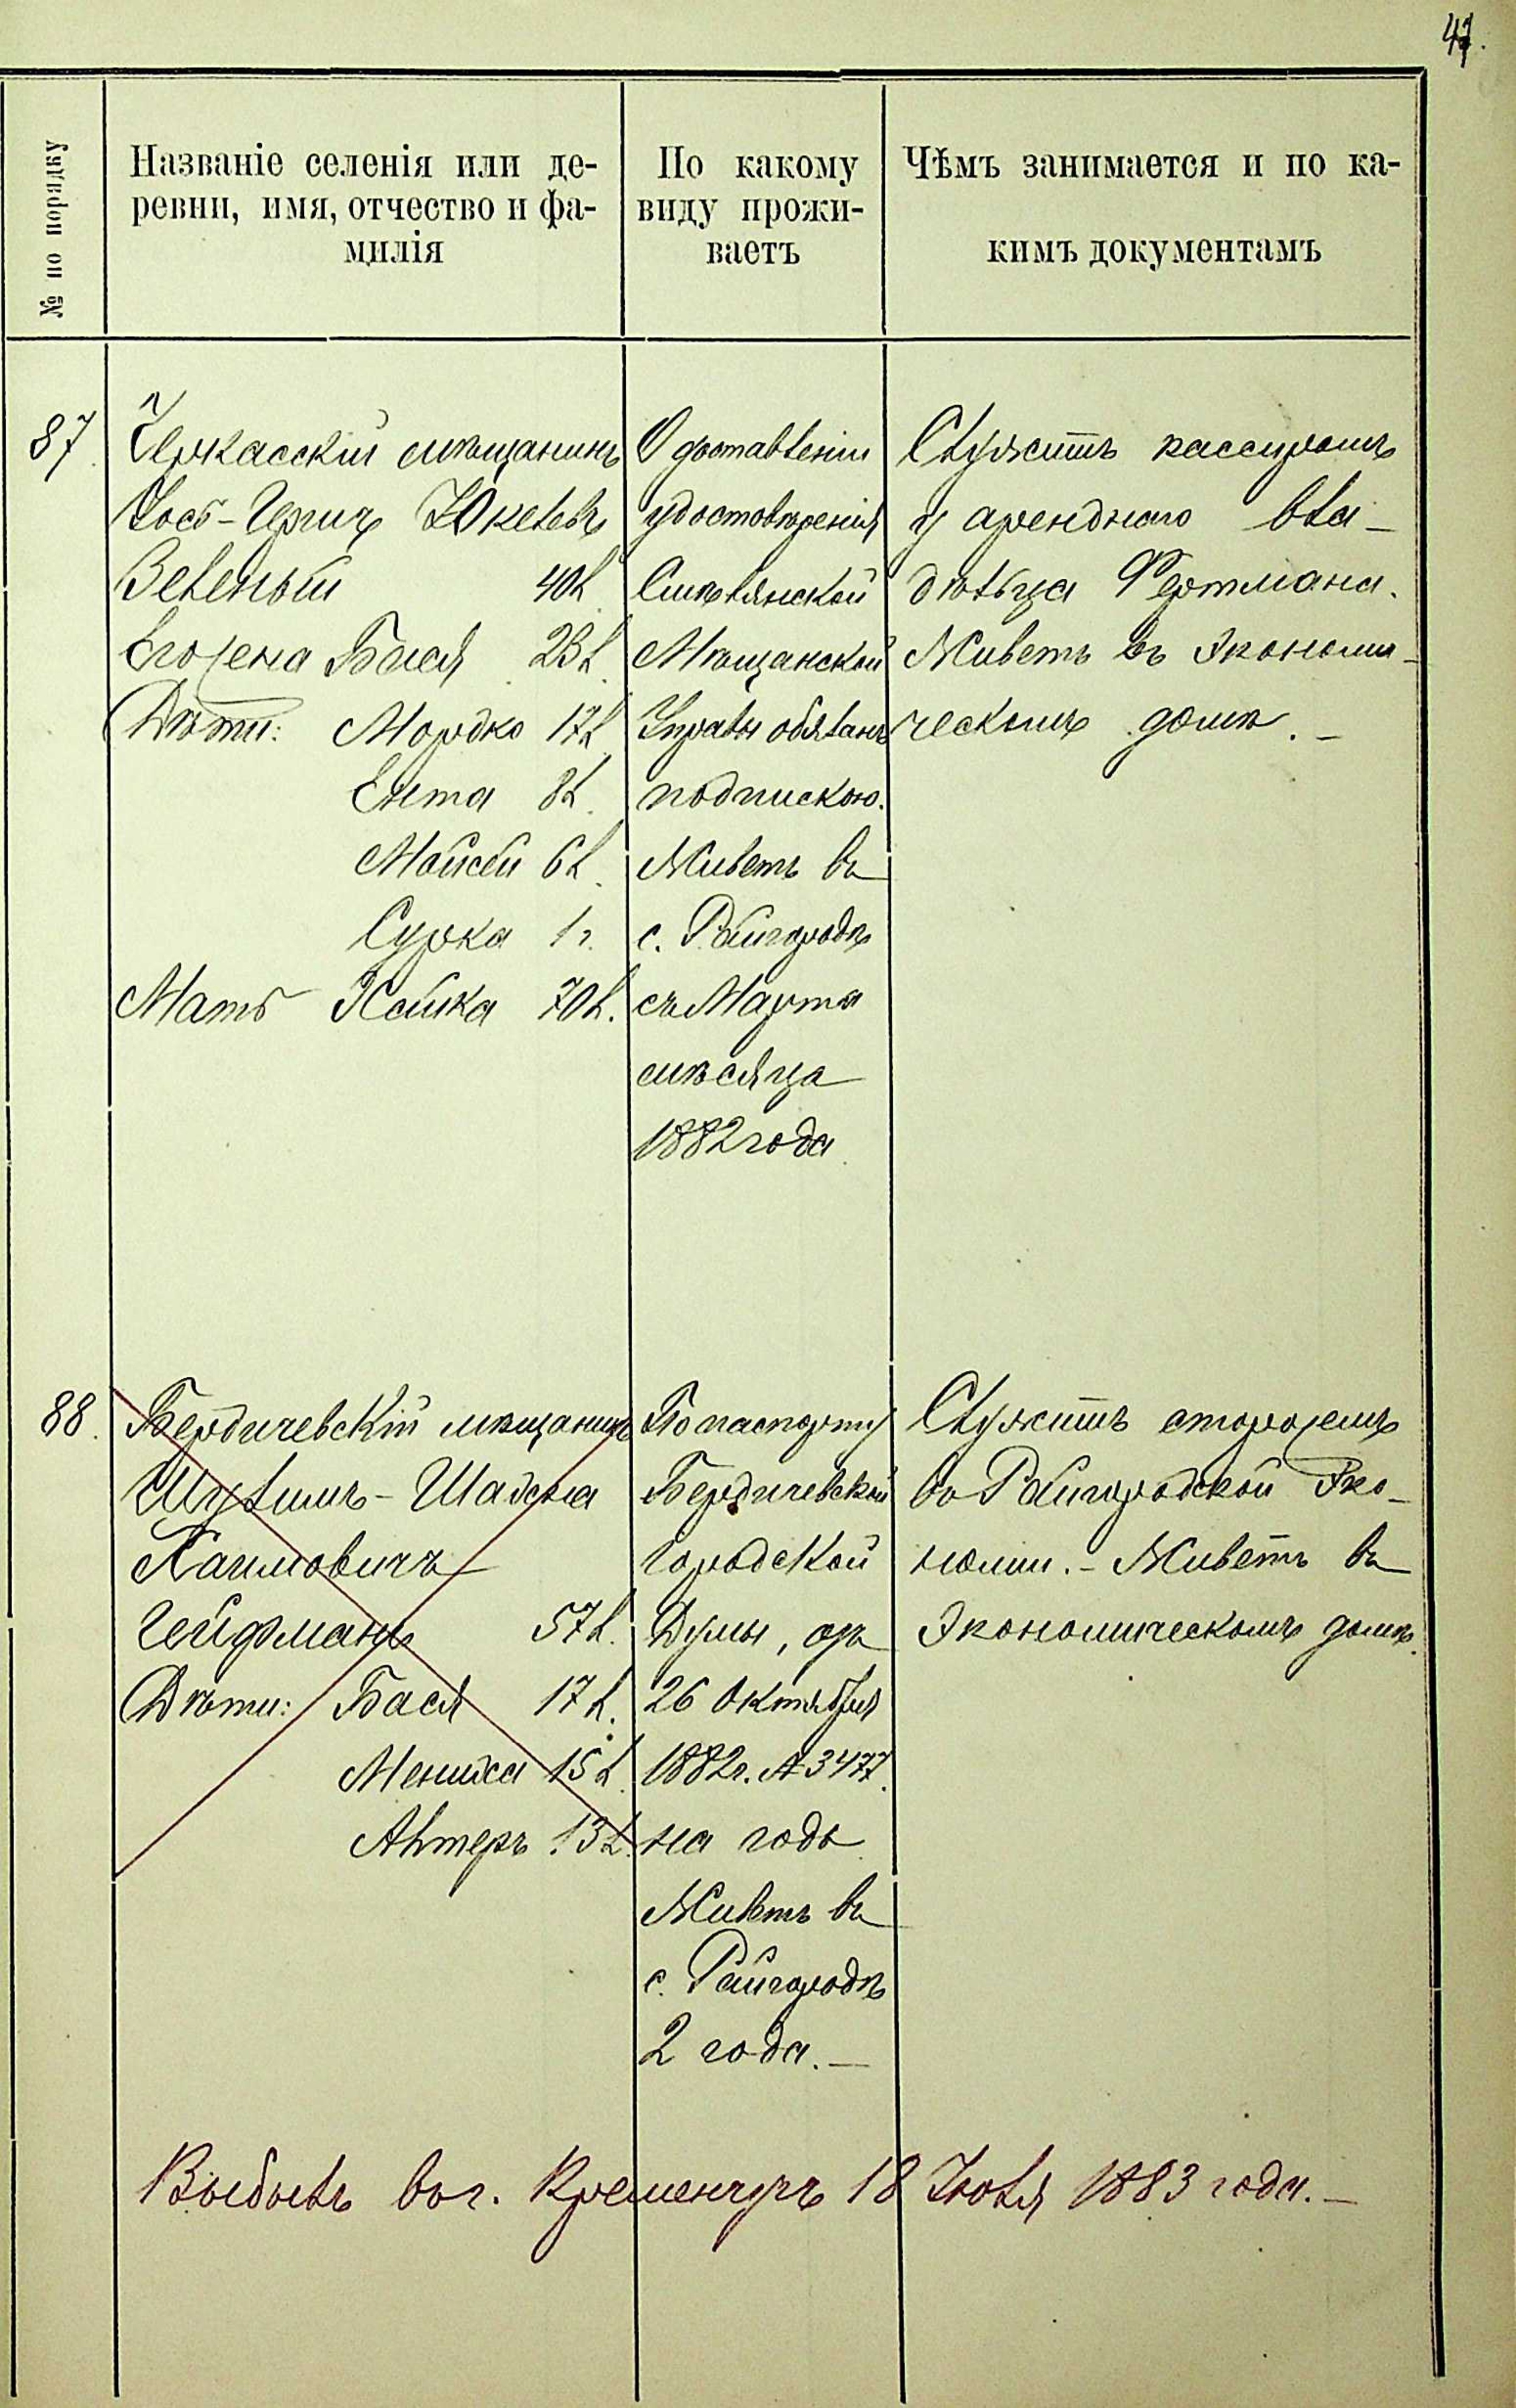 47.
№ по порядку
Названіе селенія или де-
ревни, имя, отчество и фа-
милія
По какому
виду прожи-
ваетъ
Чѣмъ занимается и по ка-
кимъ документамъ
87.
Черкасскій мѣщанинъ
Іось-Гершъ
Зеленый 40 л.
Его жена Бася 23 л.
Дѣти: Мордко 17 л.
Ента 8 л.
Мойсей 6 л.
Сурка 1 г.
Мать Хайка 70 л.
О доставленіи
удостовѣренія
Смѣлянской
Мѣщанской
Управы обязанъ
подпискою.
Живетъ въ
с. Райгородѣ
съ Марта
мѣсяца
1882 года
Служитъ кассиромъ
у аренднаго вла-
дѣльца Фертмана.
Живетъ въ Экономи-
ческомъ домѣ. –
88.
Бердичевскій мѣщанинъ
Шулимъ-
Хаимовичъ
Гейфманъ 57 л.
Дѣти: Бася 17 л.
15 л.
13 л.
По паспорту
Бердичевской
Городской
Думы, отъ
26 Октября
1882 г. № 3477.
на годъ
Живетъ въ
с. Райгородѣ
2 года. –
Служитъ сторожемъ
во Райгородской Эко-
номіи. – Живетъ въ
Экономическомъ домѣ.
Выбылъ во г. Кременчугъ 18 Іюля 1883 года. –